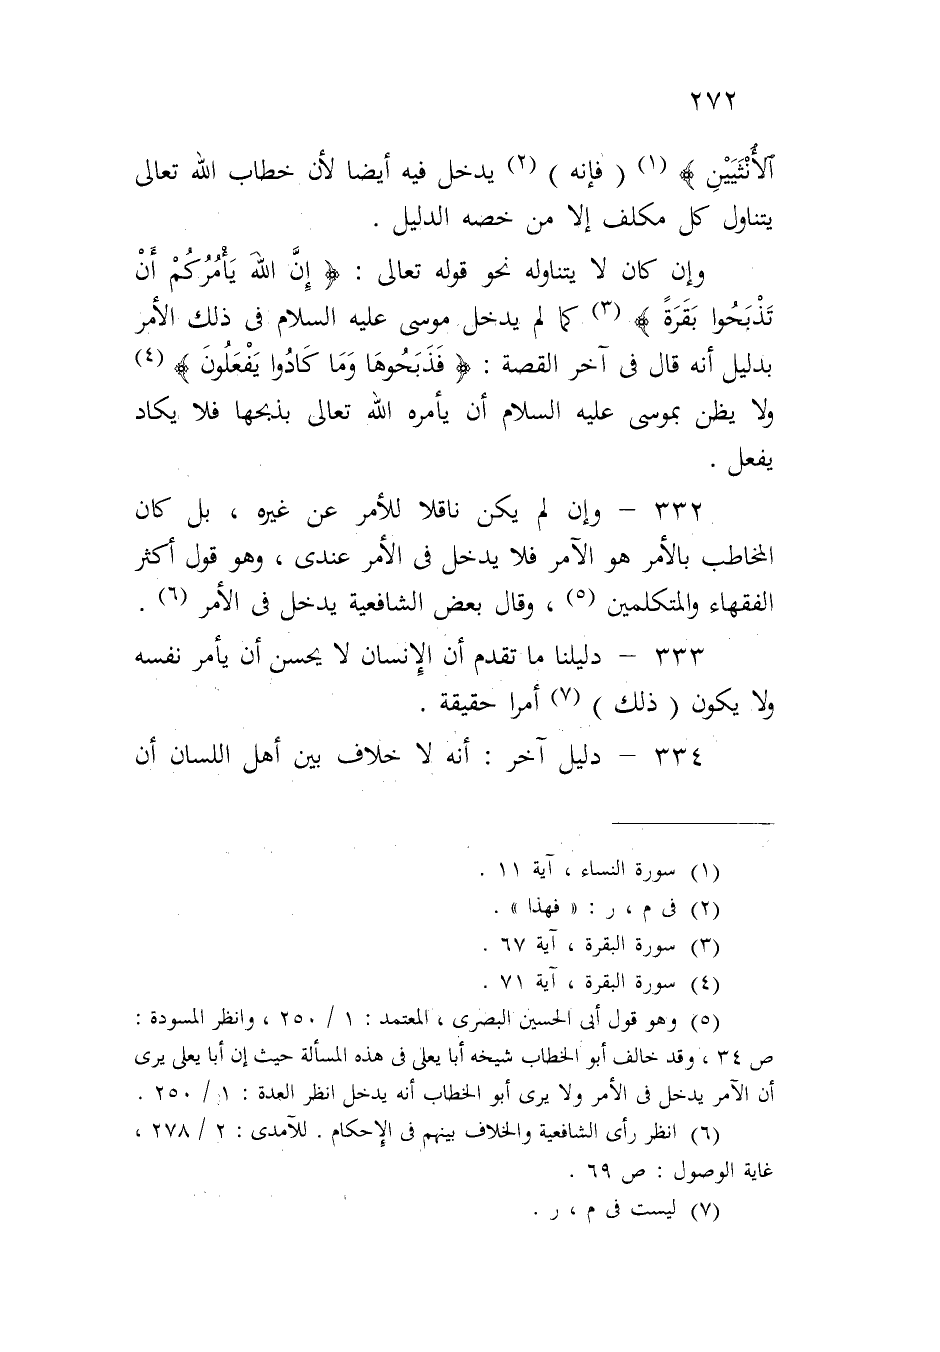 ٢٧٢
ٱلْأُنْثَيَيْنِ ﴾ (١) ( فإنه ) (٢) يدخل فيه أيضا لأن خطاب الله تعالى
يتناول كل مكلف إلا من خصه الدليل .
وإن كان لا يتناوله نحو قوله تعالى : ﴿ إِنَّ اللهَ يَأْمُرُكُمْ أَنْ
تَذْبَحُوا بَقَرَةً ﴾ (٣) كما لم يدخل موسى عليه السلام فى ذلك الأمر
بدليل أنه قال فى آخر القصة : ﴿ فَذَبَحُوهَا وَمَا كَادُوا يَفْعَلُونَ ﴾ (٤)
ولا يظن بموسى عليه السلام أن يأمره الله تعالى بذبحها فلا يكاد
يفعل .
٣٣٢ – وإن لم يكن ناقلا للأمر عن غيره ، بل كان
المخاطب بالأمر هو الآمر فلا يدخل فى الأمر عندى ، وهو قول أكثر
الفقهاء والمتكلمين (٥) ، وقال بعض الشافعية يدخل فى الأمر (٦) .
٣٣٣ – دليلنا ما تقدم أن الإنسان لا يحسن أن يأمر نفسه
ولا يكون ( ذلك ) (٧) أمرا حقيقة .
٣٣٤ – دليل آخر : أنه لا خلاف بين أهل اللسان أن
(١) سورة النساء ، آية ١١ .
(٢) فى م ، ر : « فهذا » .
(٣) سورة البقرة ، آية ٦٧ .
(٤) سورة البقرة ، آية ٧١ .
(٥) وهو قول أبى الحسين البصرى ، المعتمد : ١ / ٢٥٠ ، وانظر المسودة :
ص ٣٤ ، وقد خالف أبو الخطاب شيخه أبا يعلى فى هذه المسألة حيث إن أبا يعلى يرى
أن الآمر يدخل فى الأمر ولا يرى أبو الخطاب أنه يدخل انظر العدة : ١ / ٢٥٠ .
(٦) انظر رأى الشافعية والخلاف بينهم فى الإحكام . للآمدى : ٢ / ٢٧٨ ،
غاية الوصول : ص ٦٩ .
(٧) ليست فى م ، ر .